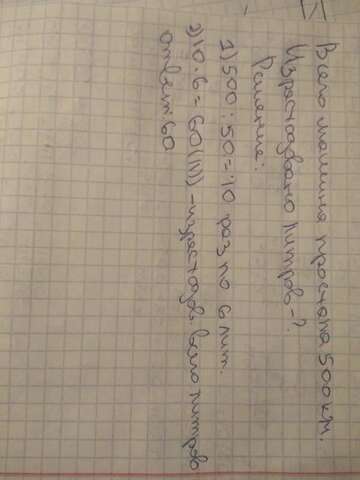 Всего машина проехала 500 км.
Израсходовано литров-?
Решение:
1) 500 : 50 = 10 раз по 6 лит.
2) 10 · 6 = 60 (л) - израсходов. всего литров
Ответ: 60